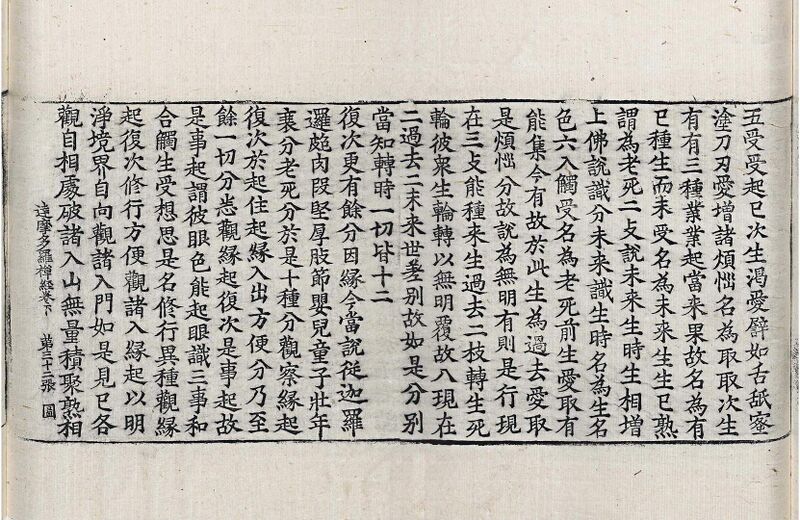 五受受起已次生渴愛譬如舌舐蜜
塗刀刃愛增諸煩惱名為取取次生
有有三種業業起當來果故名為有
已種生而未受名為未來生生已熟
謂為老死二支說未來生時生相增
上佛說識分未來識生時名為生名
色六入觸受名為老死前生愛取有
能集今有故於此生為過去愛取
是煩惱分故說為無明有則是行現
在三支能種來生過去二枝轉生死
輪彼衆生輪轉以無明覆故八現在
二過去二未來世差別故如是分別
當知轉時一切皆十二
復次更有餘分因緣今當說從迦羅
邏皰肉段堅厚肢節嬰兒童子壯年
衰分老死分於是十種分觀察緣起
復次於起住起緣入出方便分乃至
餘一切分悉觀緣起復次是事起故
是事起謂彼眼色能起眼識三事和
合觸生受想思是名修行異種觀緣
起復次修行方便觀諸入緣起以明
淨境界自向觀諸入門如是見已各
觀自相處破諸入山無量積聚熟相
達摩多羅禪經卷下 第三十二張 圖